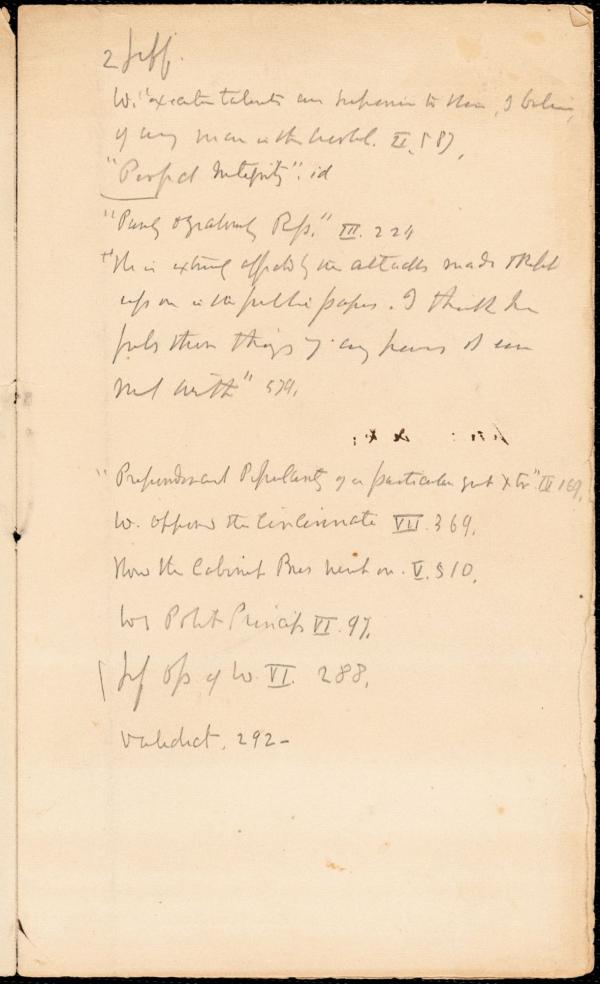 2 Jeff.
W.'s "executive talents are superior to those, I believe,
of any man in the world. II, 587,
"Perfect Integrity". id
"Purely & gratuitously Reps." III. 224
"He is extremely affected by the attacks made & kept
up on in the public papers. I think he
feels these things of any person I ever
met with" 579.
"Preponderant Popularity of a particular great" III 169.
W. opposed the Cincinnati VII. 369.
How the Cabinet Bus. went on. V. 510.
W's Polit Princip VI. 97.
Jef Op. of W. VI. 288.
Valedict. 292-